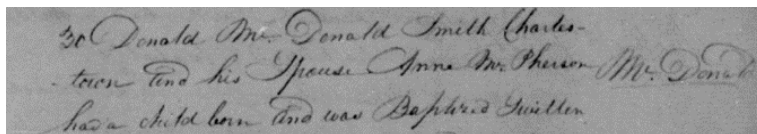 30 Donald Mc. Donald Smith Charles-
-town and his Spouse Anne Mc. Pherson Mc. Donald
had a child born and was Baptized